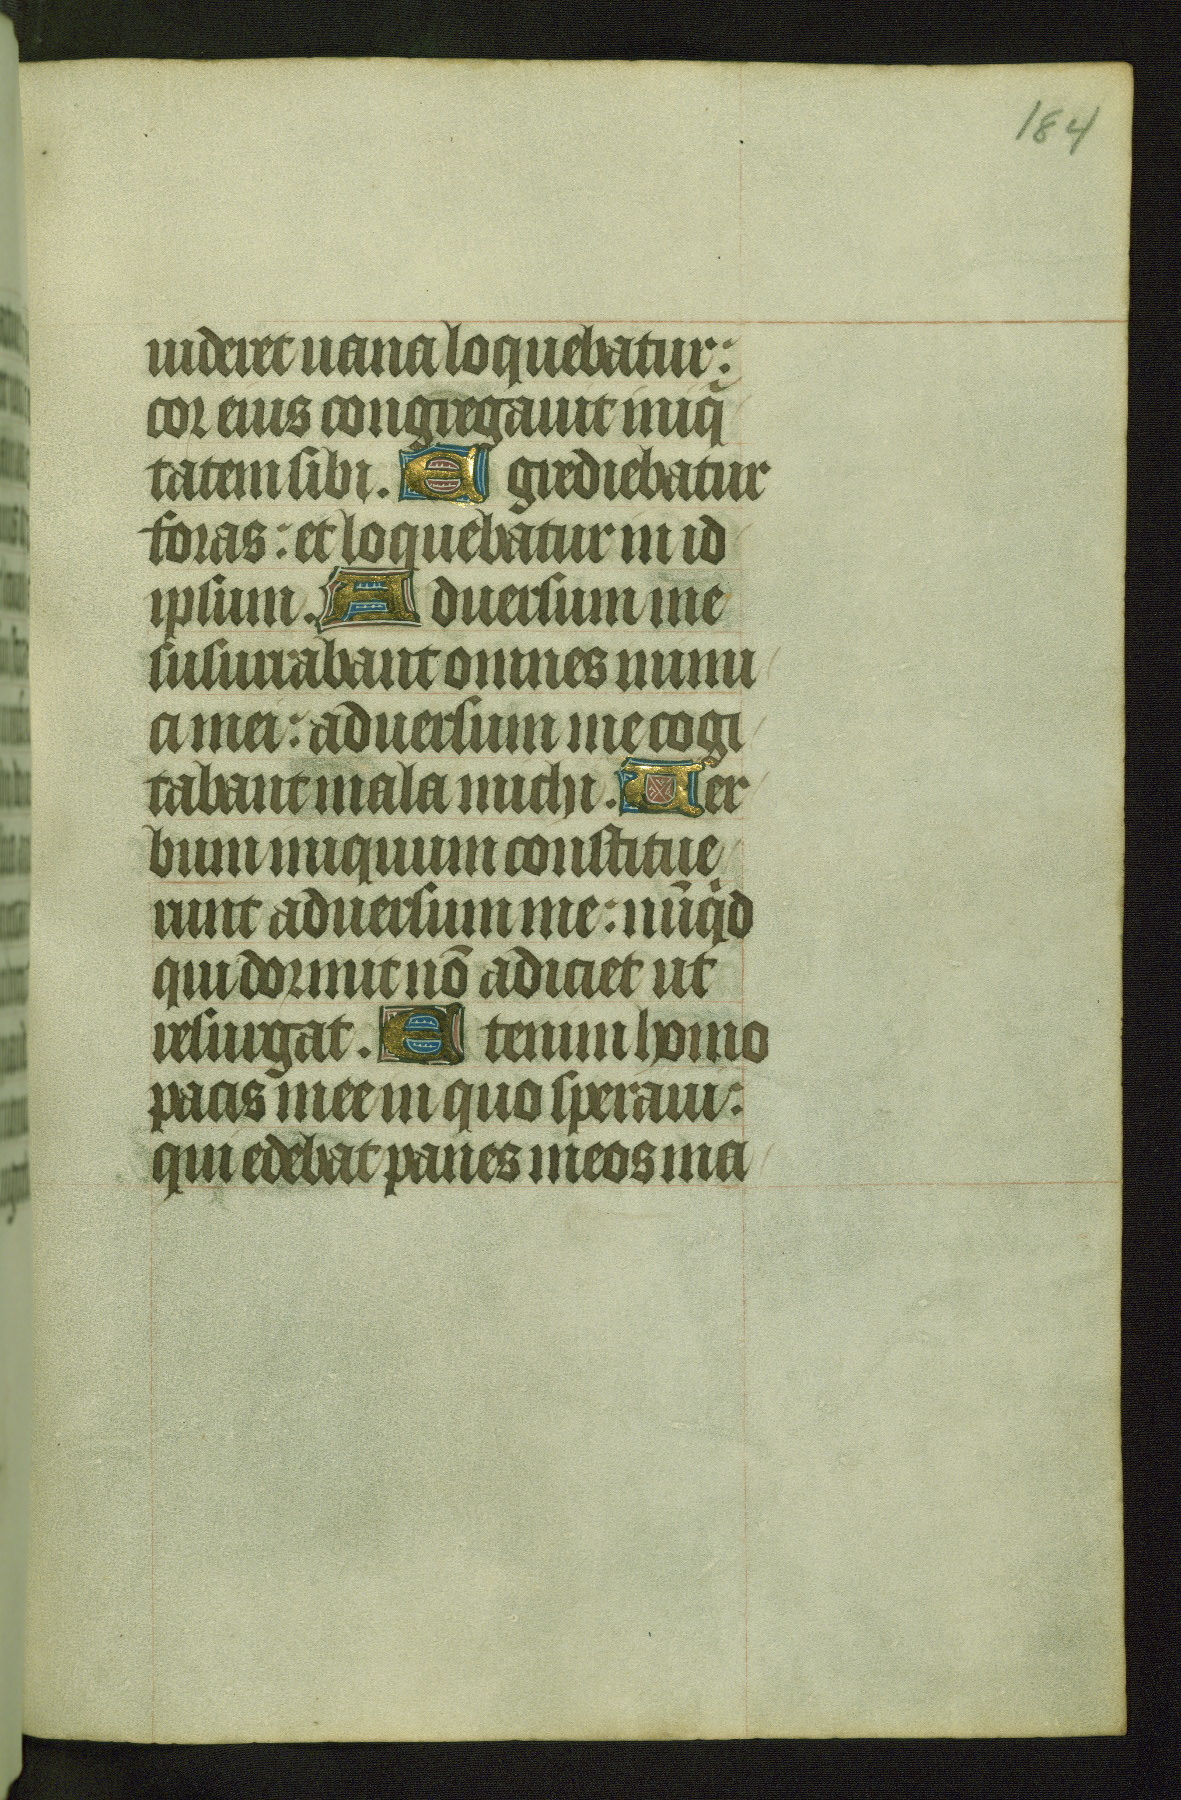 184
uideret uana loquebatur:
cor eius congregauit iniq̄
tatem sibi. E grediebatur
foras: et loquebatur in id
ipsum. A duersum me
susurrabant omnes inimi
ci mei: aduersum me cogi
tabant mala michi. Uer
bum iniquum constitue
runt aduersum me: nūqͥd
qui dormit nō adiciet ut
resurgat. E tenim homo
pacis mee in quo speraui:
qui edebat panes meos ma